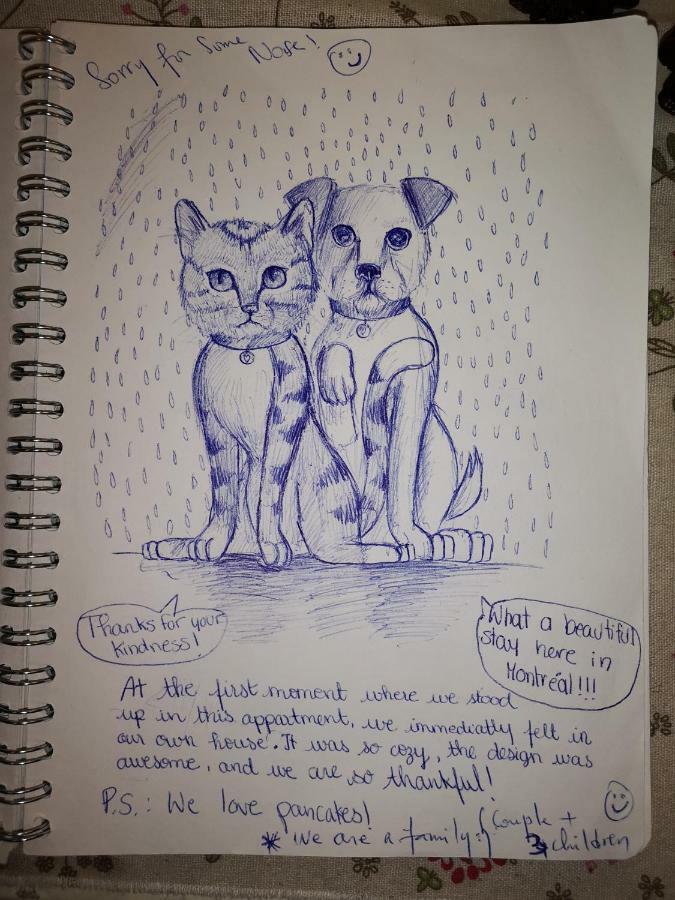 Sorry for some Nose!
Thanks for your
kindness!
What a beautiful
stay here in
Montréal!!!
At the first moment where we stood
up in this appartment, we immediatly felt in
our own house. It was so cozy, the design was
awesome, and we are so thankful!
P.S.: We love pancakes!
* We are a family: { Couple +
3 children